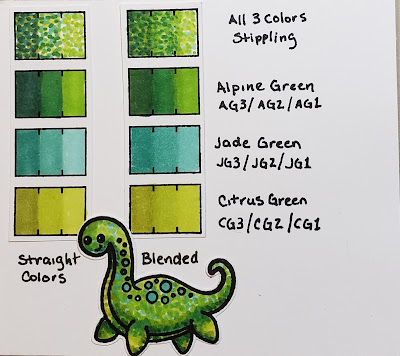 All 3 Colors
Stippling
Alpine Green
AG3/AG2/AG1
Jade Green
JG3/JG2/JG1
Citrus Green
CG3/CG2/CG1
Straight
Colors
Blended